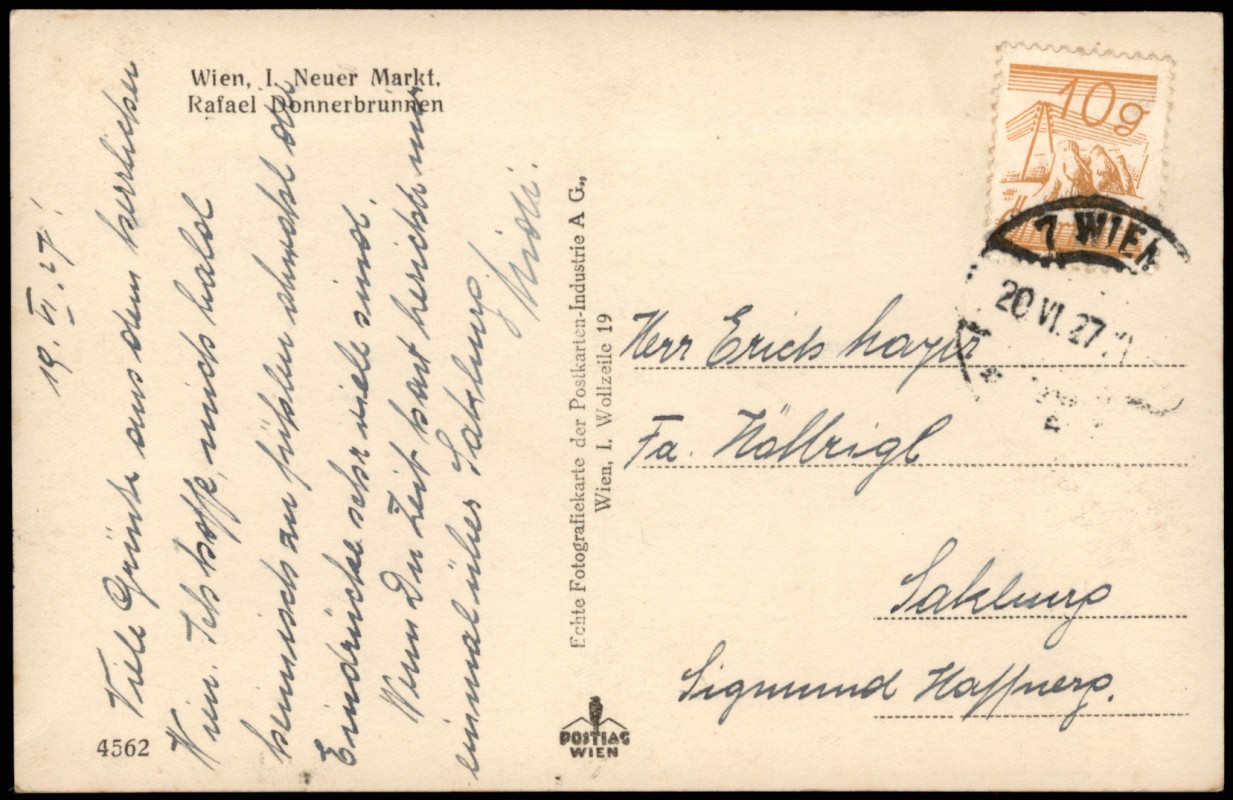 Wien, I. Neuer Markt.
Rafael Donnerbrunnen
19. VI. 27.
Viele Grüße aus dem herrlichen
Wien. Ich hoffe, mich bald
heimisch zu fühlen obwohl der
Eindrücke sehr viele sind.
Wenn Du Zeit hast bericht mir
einmal über Salzburg.
4562
Echte Fotografiekarte der Postkarten-Industrie A G.,
Wien, I. Wollzeile 19
POSTIAG
WIEN
10g
7 WIEN
20 VI. 27
Herr Erich Mayr
Fa. Höllrigl
Salzburg
Sigmund Haffnerg.